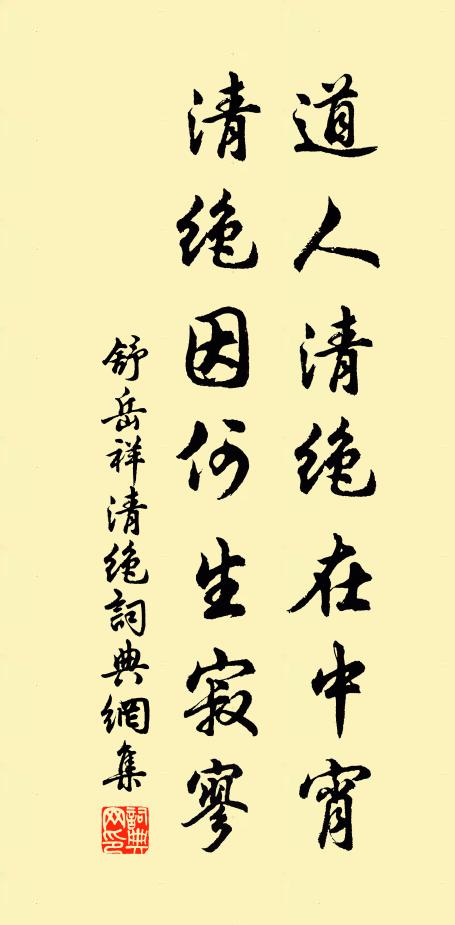 道人清絶在中宵
清絶因何生寂寥
舒岳祥清絶詞典網集
詞典網印